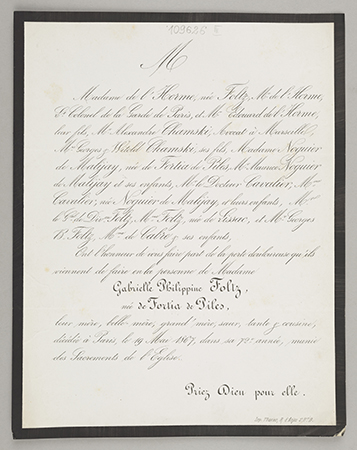 109686 II
M
Madame de l'Horme, née Foltz, Mr. de l'Horme,
Lt. Colonel de la Garde de Paris, et Mr. Edouard de l'Horme,
leur fils, Mr. Alexandre Chamski, Avocat à Marseille,
Mrs. Georges & Witold Chamski, ses fils, Madame Noguier
de Malijay, née de Fortia de Piles, Mr. Maurice Noguier
de Malijay et ses enfants, Mr. le Docteur Cavalier, Mme.
Cavalier, née Noguier de Malijay, et leurs enfants,
le Gal. de Dion Foltz, Mme. Foltz, née de et Mr. Georges
Bn. Foltz, Mme. de Cabre & ses enfants,
Ont l'honneur de vous faire part de la perte douloureuse qu'ils
viennent de faire en la personne de Madame
Gabrielle Philippine Foltz,
née de Fortia de Piles,
leur mère, belle-mère, grand'mère, sœur, tante & cousine,
décédée à Paris, le 19 Mai 1867, dans sa 72e. année, munie
des Sacrements de l'Eglise.
Priez Dieu pour elle.